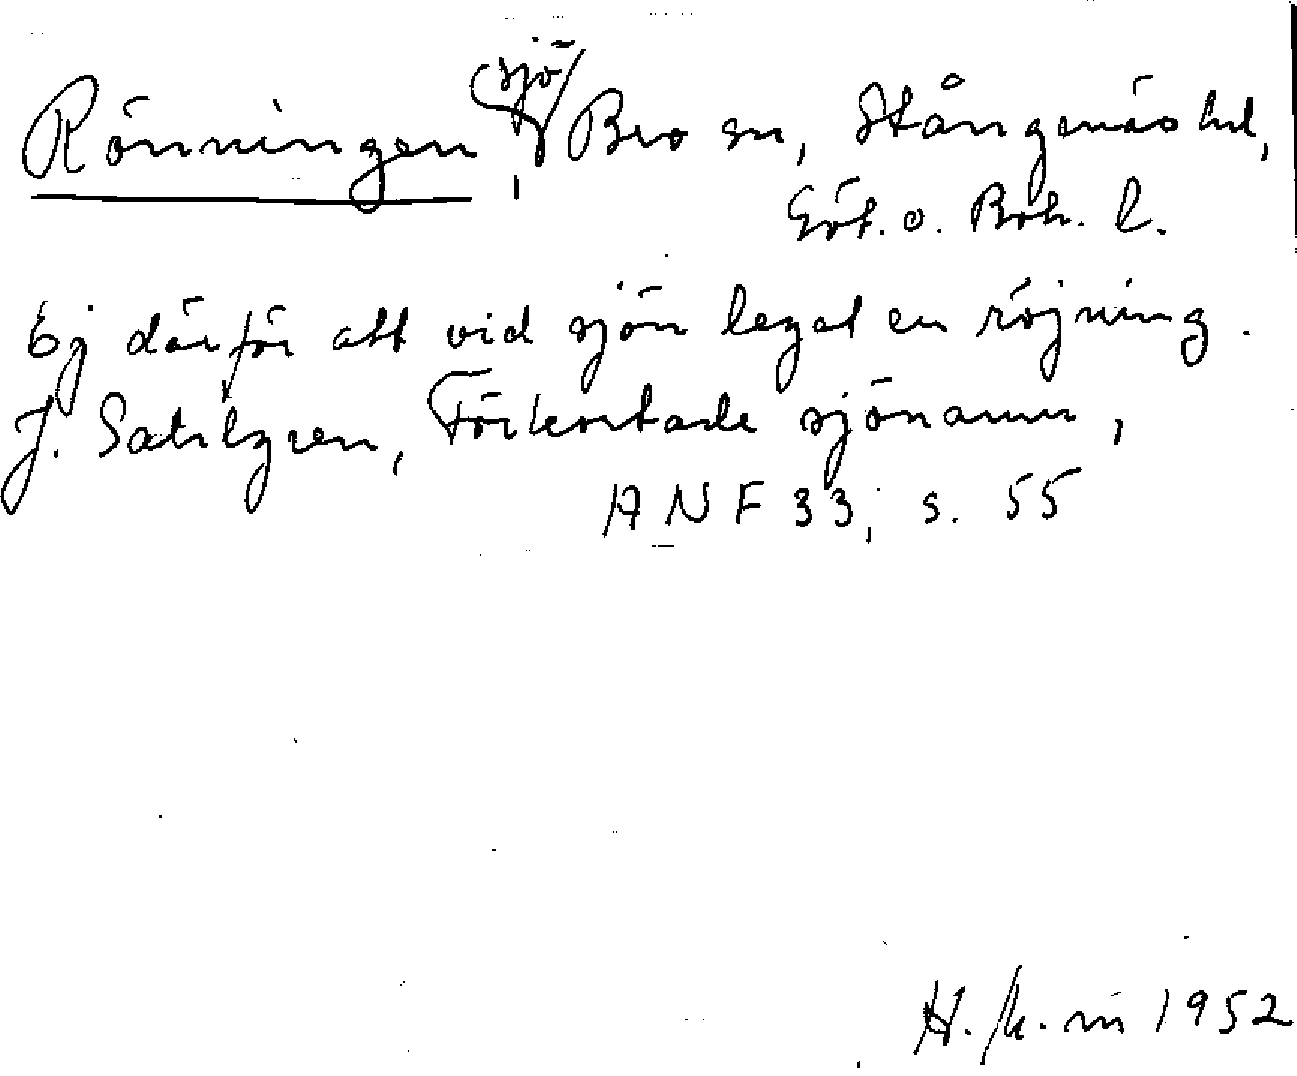 Rönningen, sjö, Bro sn, Stångenäs hd,
Göt. o. Boh. l.
Ej därför att vid sjön legat en röjning.
J. Sahlgren, Förkortade sjönamn,
ANF 33, s. 55
1952